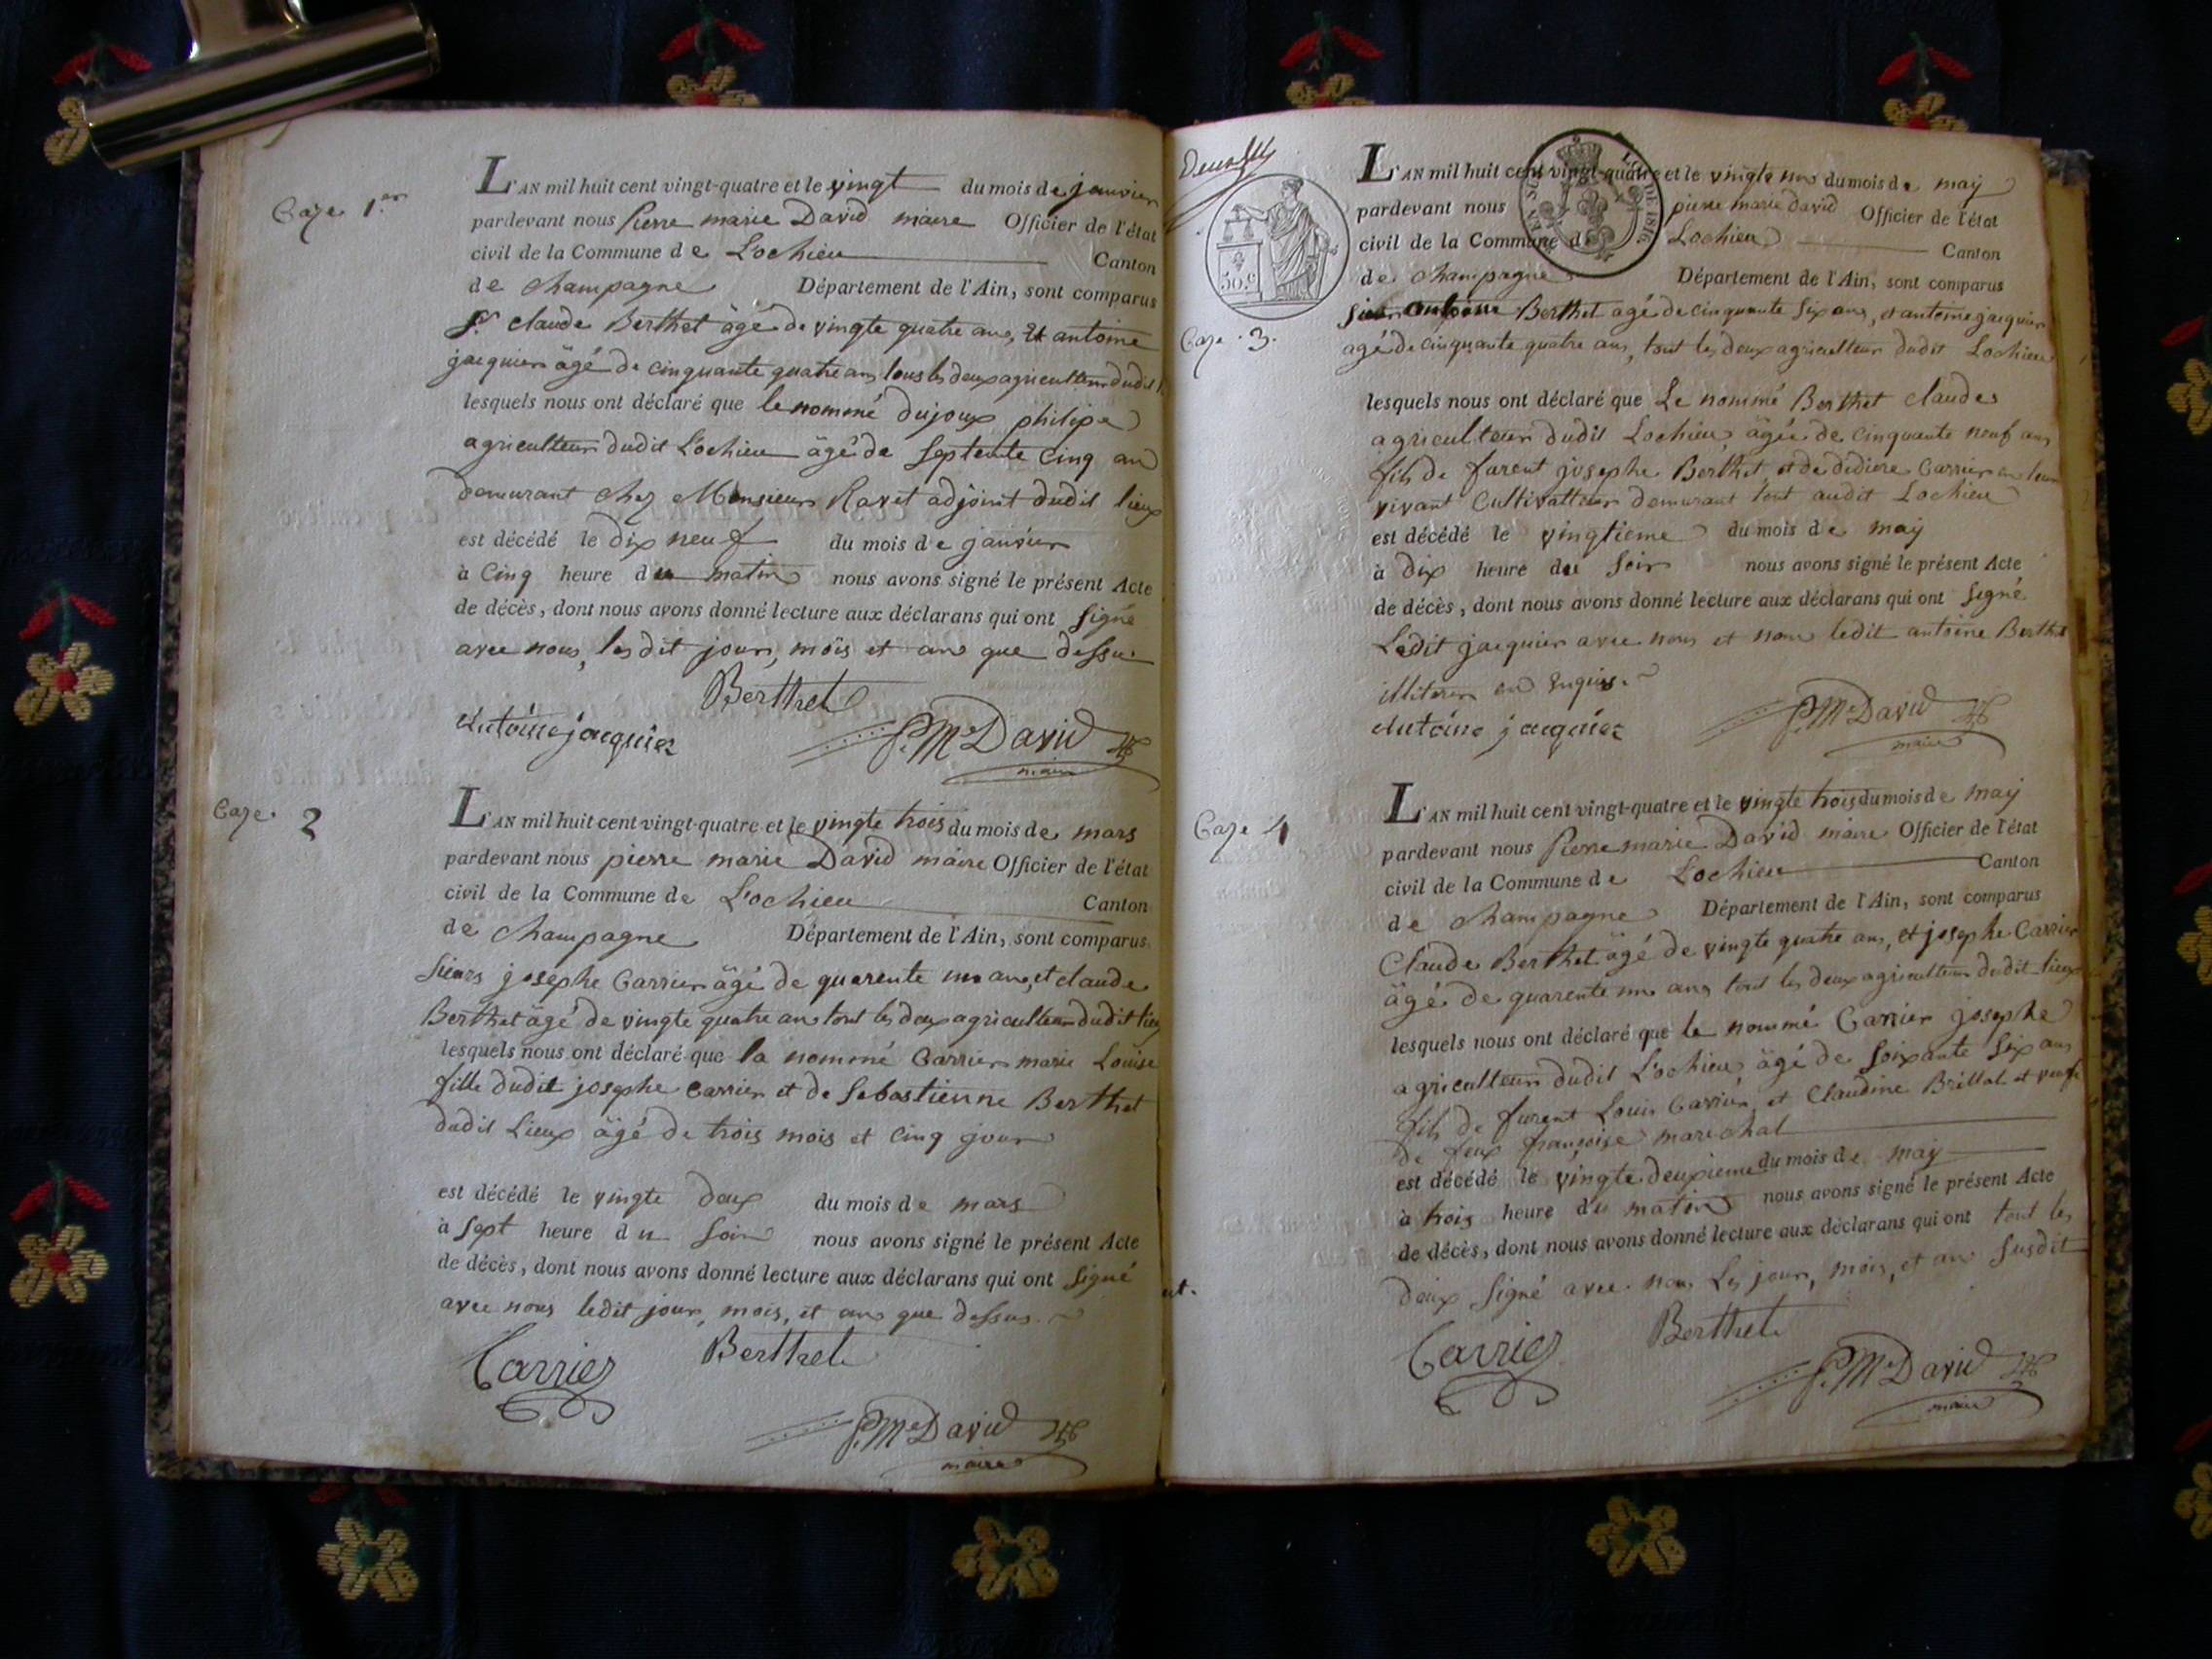 Caze 1.er
L'AN mil huit cent vingt-quatre et le vingt du mois de janvier
pardevant nous Pierre marie David maire Officier de l'état
civil de la Commune de Lochieu Canton
de Champagne Département de l'Ain, sont comparus
Sr. claude Berthet âgé de vingte quatre ans, Et antoine
jacquier âgé de cinquante quatre ans tous les deux agriculteur dudit
lesquels nous ont déclaré que le nommé dujoux philipe
agriculteur dudit Lochieu âgé de septente cinq an
demurant chez Monsieur Ravet adjoint dudit lieux
est décédé le dix neuf du mois de janvier
à Cinq heure du matin nous avons signé le présent Acte
de décès, dont nous avons donné lecture aux déclarans qui ont signé
avec nous, les dit jour, mois et an que dessu
Berthet
Antoine jacquier
P. M. David
maire
Caze 2
L'AN mil huit cent vingt-quatre et le vingte trois du mois de mars
pardevant nous pierre marie David maire Officier de l'état
civil de la Commune de Lochieu Canton
de Champagne Département de l'Ain, sont comparus
sieurs josephe Carrier âgé de quarente un ans, et claude
Berthet âgé de vingte quatre ans tout les deux agriculteur dudit lieu
lesquels nous ont déclaré que la nommé Carrier marie Louise
fille dudit josephe Carrier et de Sebastienne Berthet
dudit Lieux âgé de trois mois et cinq jour
est décédé le vingte deux du mois de mars
à sept heure du soir nous avons signé le présent Acte
de décès, dont nous avons donné lecture aux déclarans qui ont signé
avec nous ledit jour, mois, et an que dessus
Carrier
Berthet
P. M. David
maire
50. c
DE 1816
L'AN mil huit cent vingt-quatre et le vingte un du mois de may
pardevant nous pierre marie david Officier de l'état
civil de la Commune de Lochieu Canton
de Champagne Département de l'Ain, sont comparus
Caze 3.
sieur antoine Berthet agé de cinquante six ans, et antoine jacquier
agé de cinquante quatre ans, tout les deux agriculteur dudit Lochieu
lesquels nous ont déclaré que Le nommé Berthet claude
agriculteur dudit Lochieu, âgée de cinquante neuf ans
fils de furent josephe Berthet, et de didiere Carrier en leur
vivant Cultivatteur demurant tout audit Lochieu
est décédé le vingtieme du mois de may
à dix heure du soir nous avons signé le présent Acte
de décès, dont nous avons donné lecture aux déclarans qui ont signé
Ledit jacquier avec nous et non ledit antoine Berthet
illiterer
Antoine jacquier
P. M. David
maire
Caze 4
L'AN mil huit cent vingt-quatre et le vingte trois du mois de may
pardevant nous Pierre marie David maire Officier de l'état
civil de la Commune de Lochieu Canton
de Champagne Département de l'Ain, sont comparus
Claude Berthet âgé de vingte quatre ans, et josephe Carrier
âgé de quarente un ans tout les deux agriculteur dudit lieux
lesquels nous ont déclaré que le nommé Carrier josephe
agriculteur dudit Lochieu, âgé de soixante six ans
fils de furent Louis Carrier, et Claudine Brillat et veuf
de feux françoise marechal
est décédé le vingte deuxieme du mois de may
à trois heure du matin nous avons signé le présent Acte
de décès, dont nous avons donné lecture aux déclarans qui ont tout les
deux signé avec nous Les jour, mois, et an susdit
Carrier
Berthet
P. M. David
maire